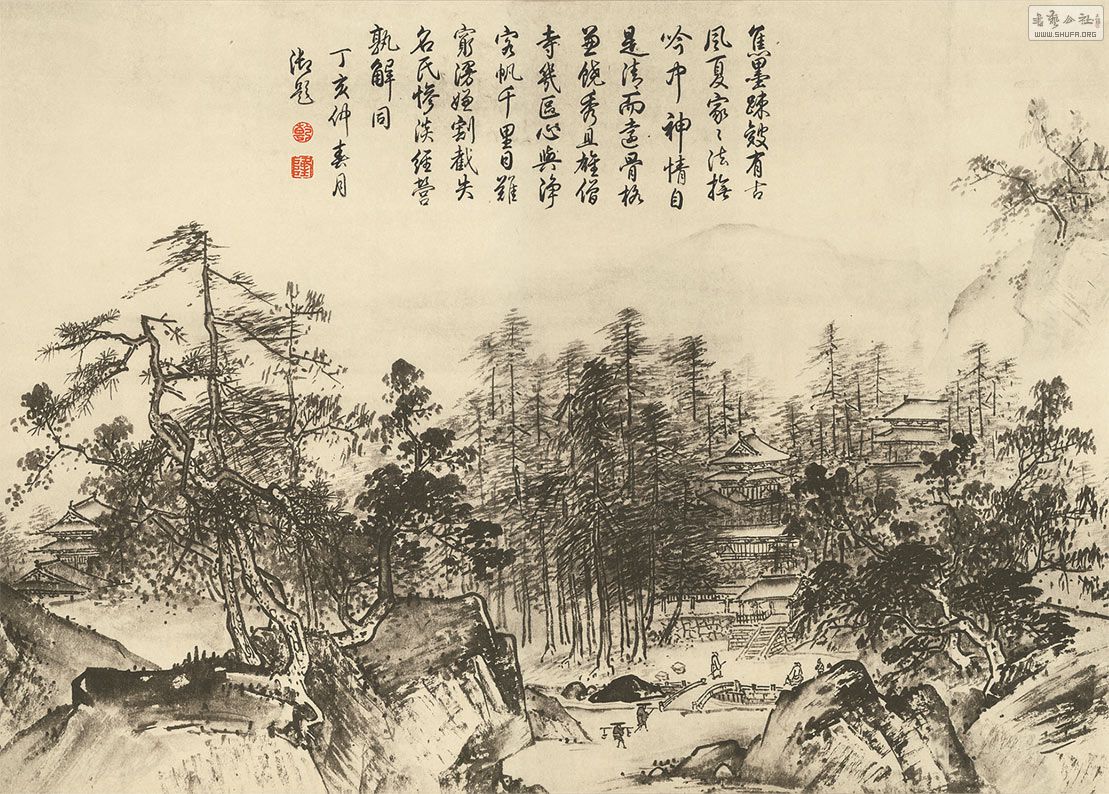 焦墨踈皴有古
風夏家〻法撫
吟中神情自
是清而遠骨格
兼饒秀且雄僧
寺幾區心與淨
客帆千里目難
窮漫嫌割截失
名氏慘淡經營
孰解同
丁亥仲春月
御題
乾
隆
書藝公社
WWW.SHUFA.ORG